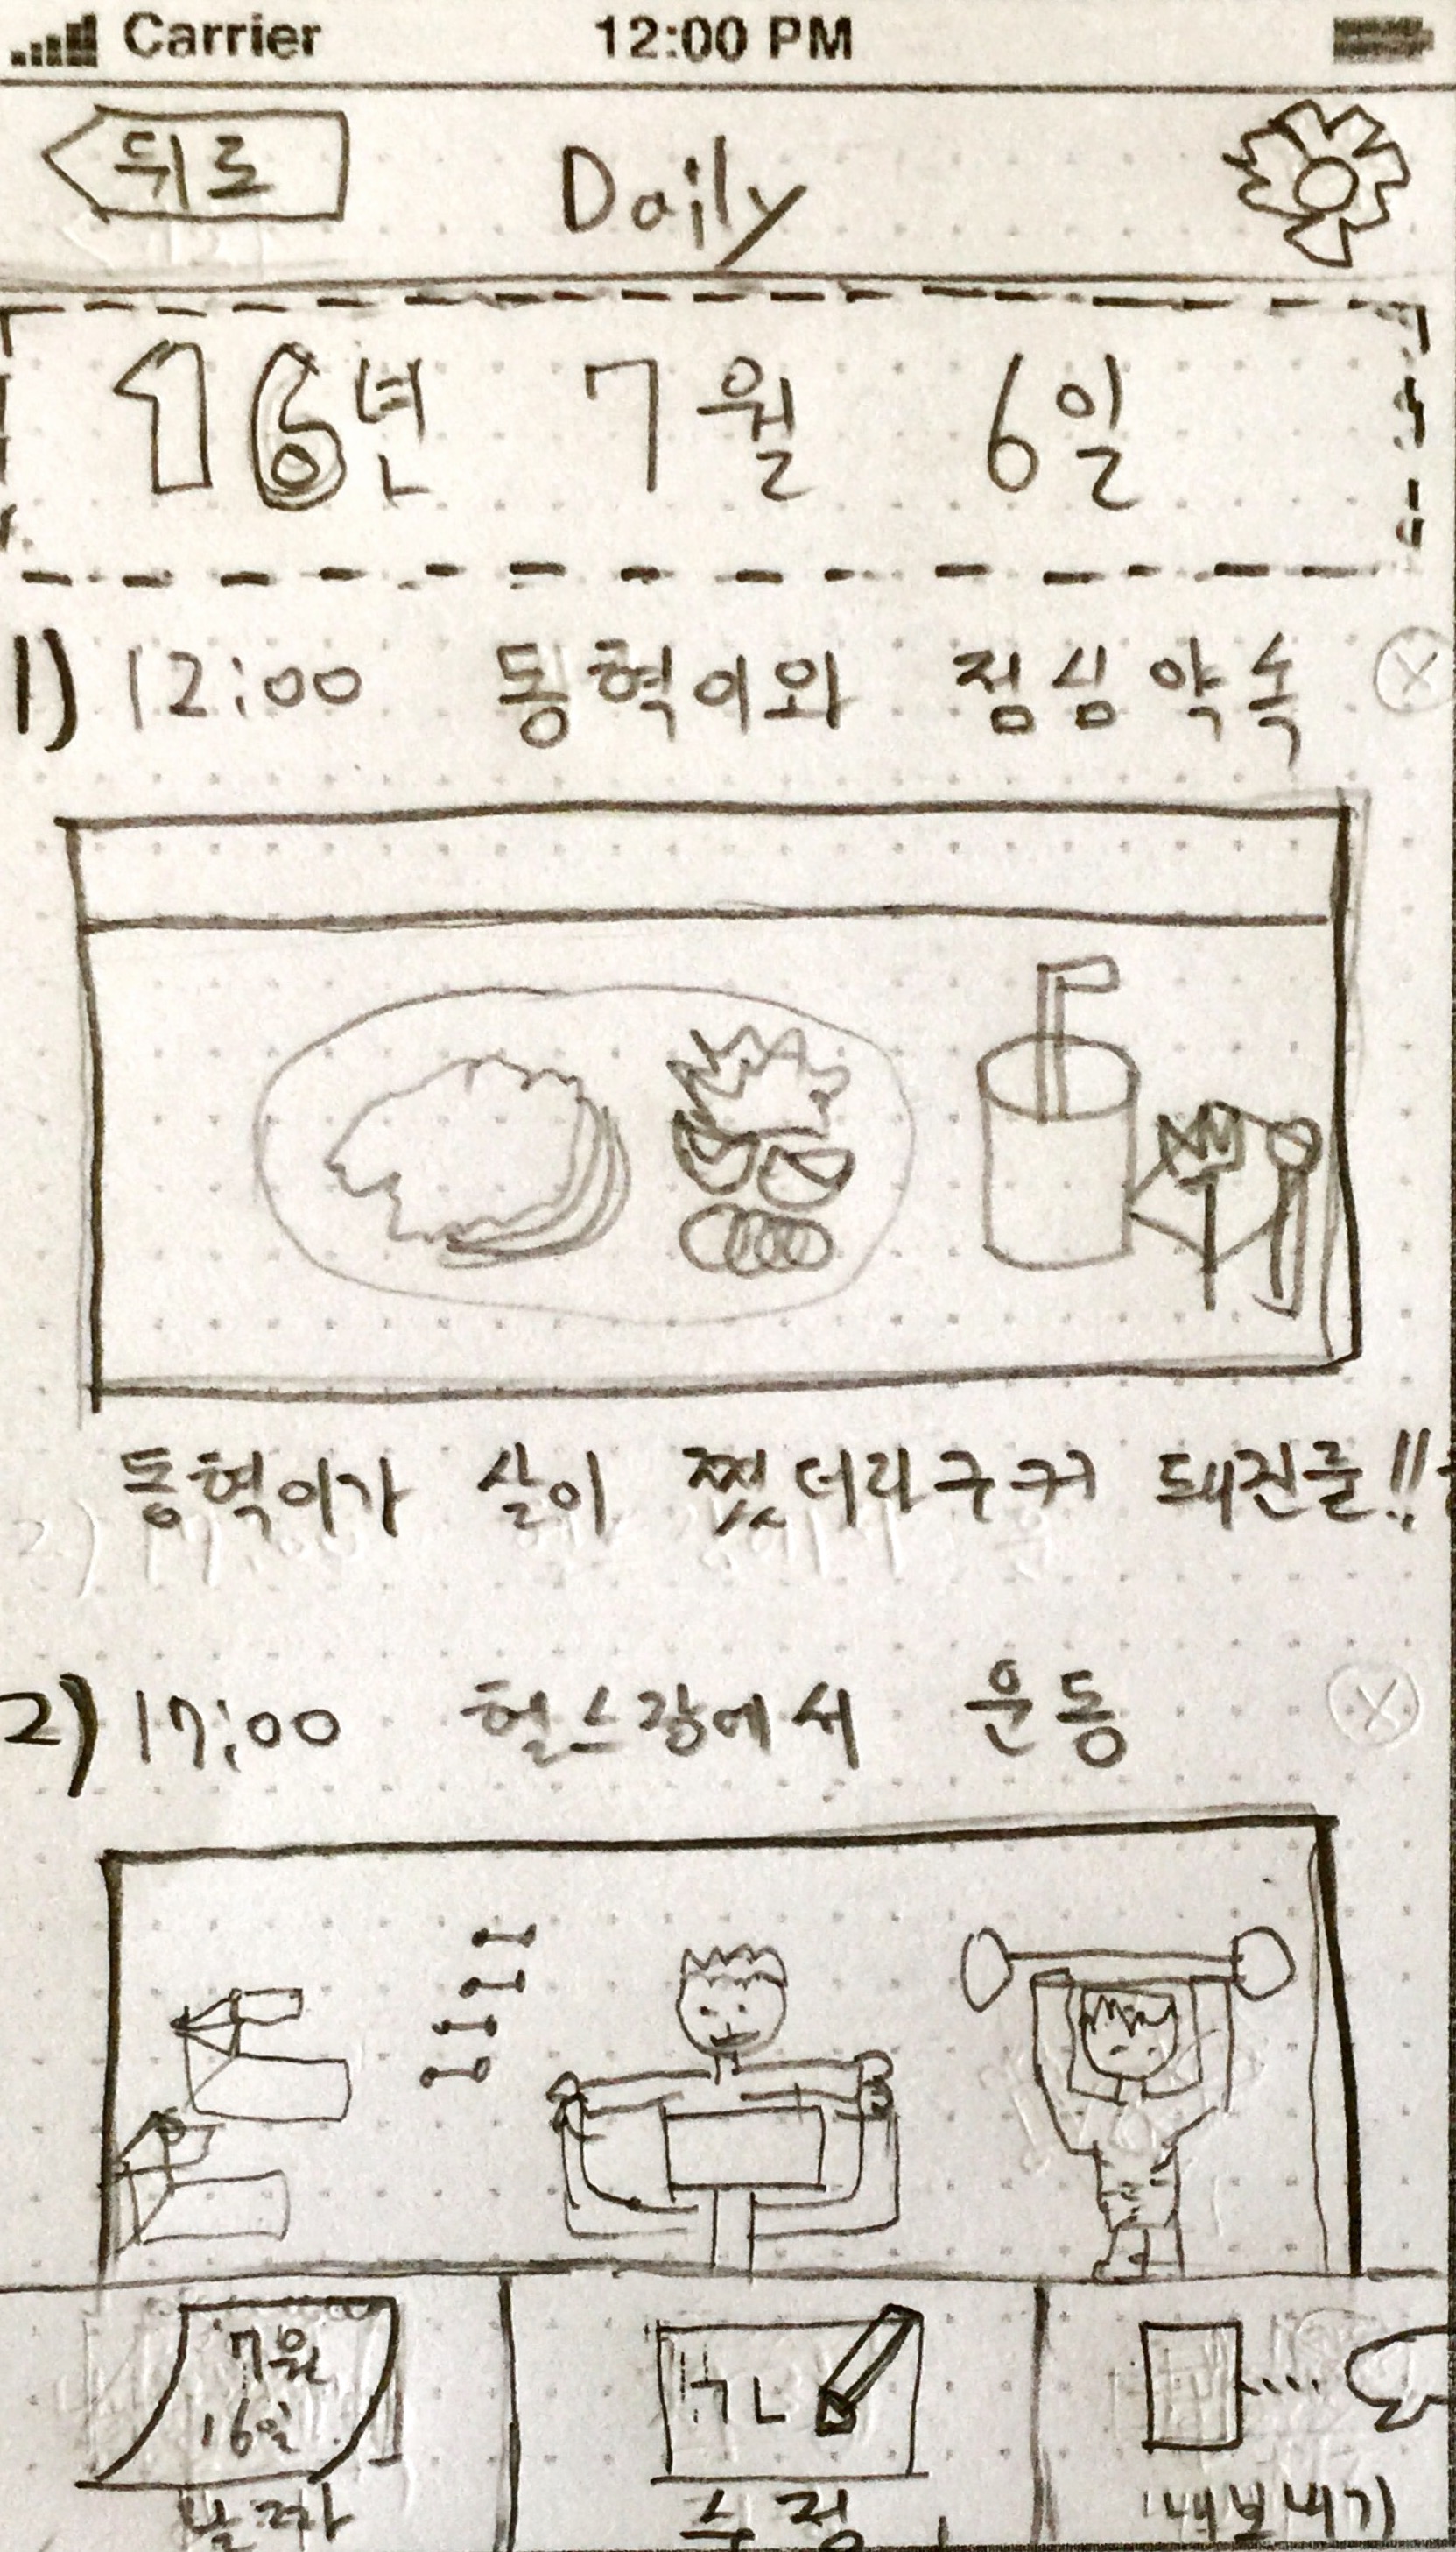 Carrier 12:00 PM
뒤로 Daily
16년 7월 6일
1) 12:00 동혁이와 점심약속 X
동혁이가 살이 쪘더라구 커 돼진줄!!
2) 17:00 헬스장에서 운동 X
7월
16일
날짜 수정 내보내기